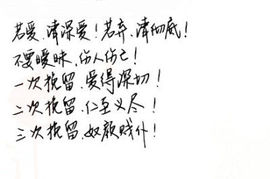 若爱,请深爱!若弃,请彻底!
不要暧昧,伤人伤己!
一次挽留,爱得深切!
二次挽留,仁至义尽!
三次挽留,奴颜贱仆!